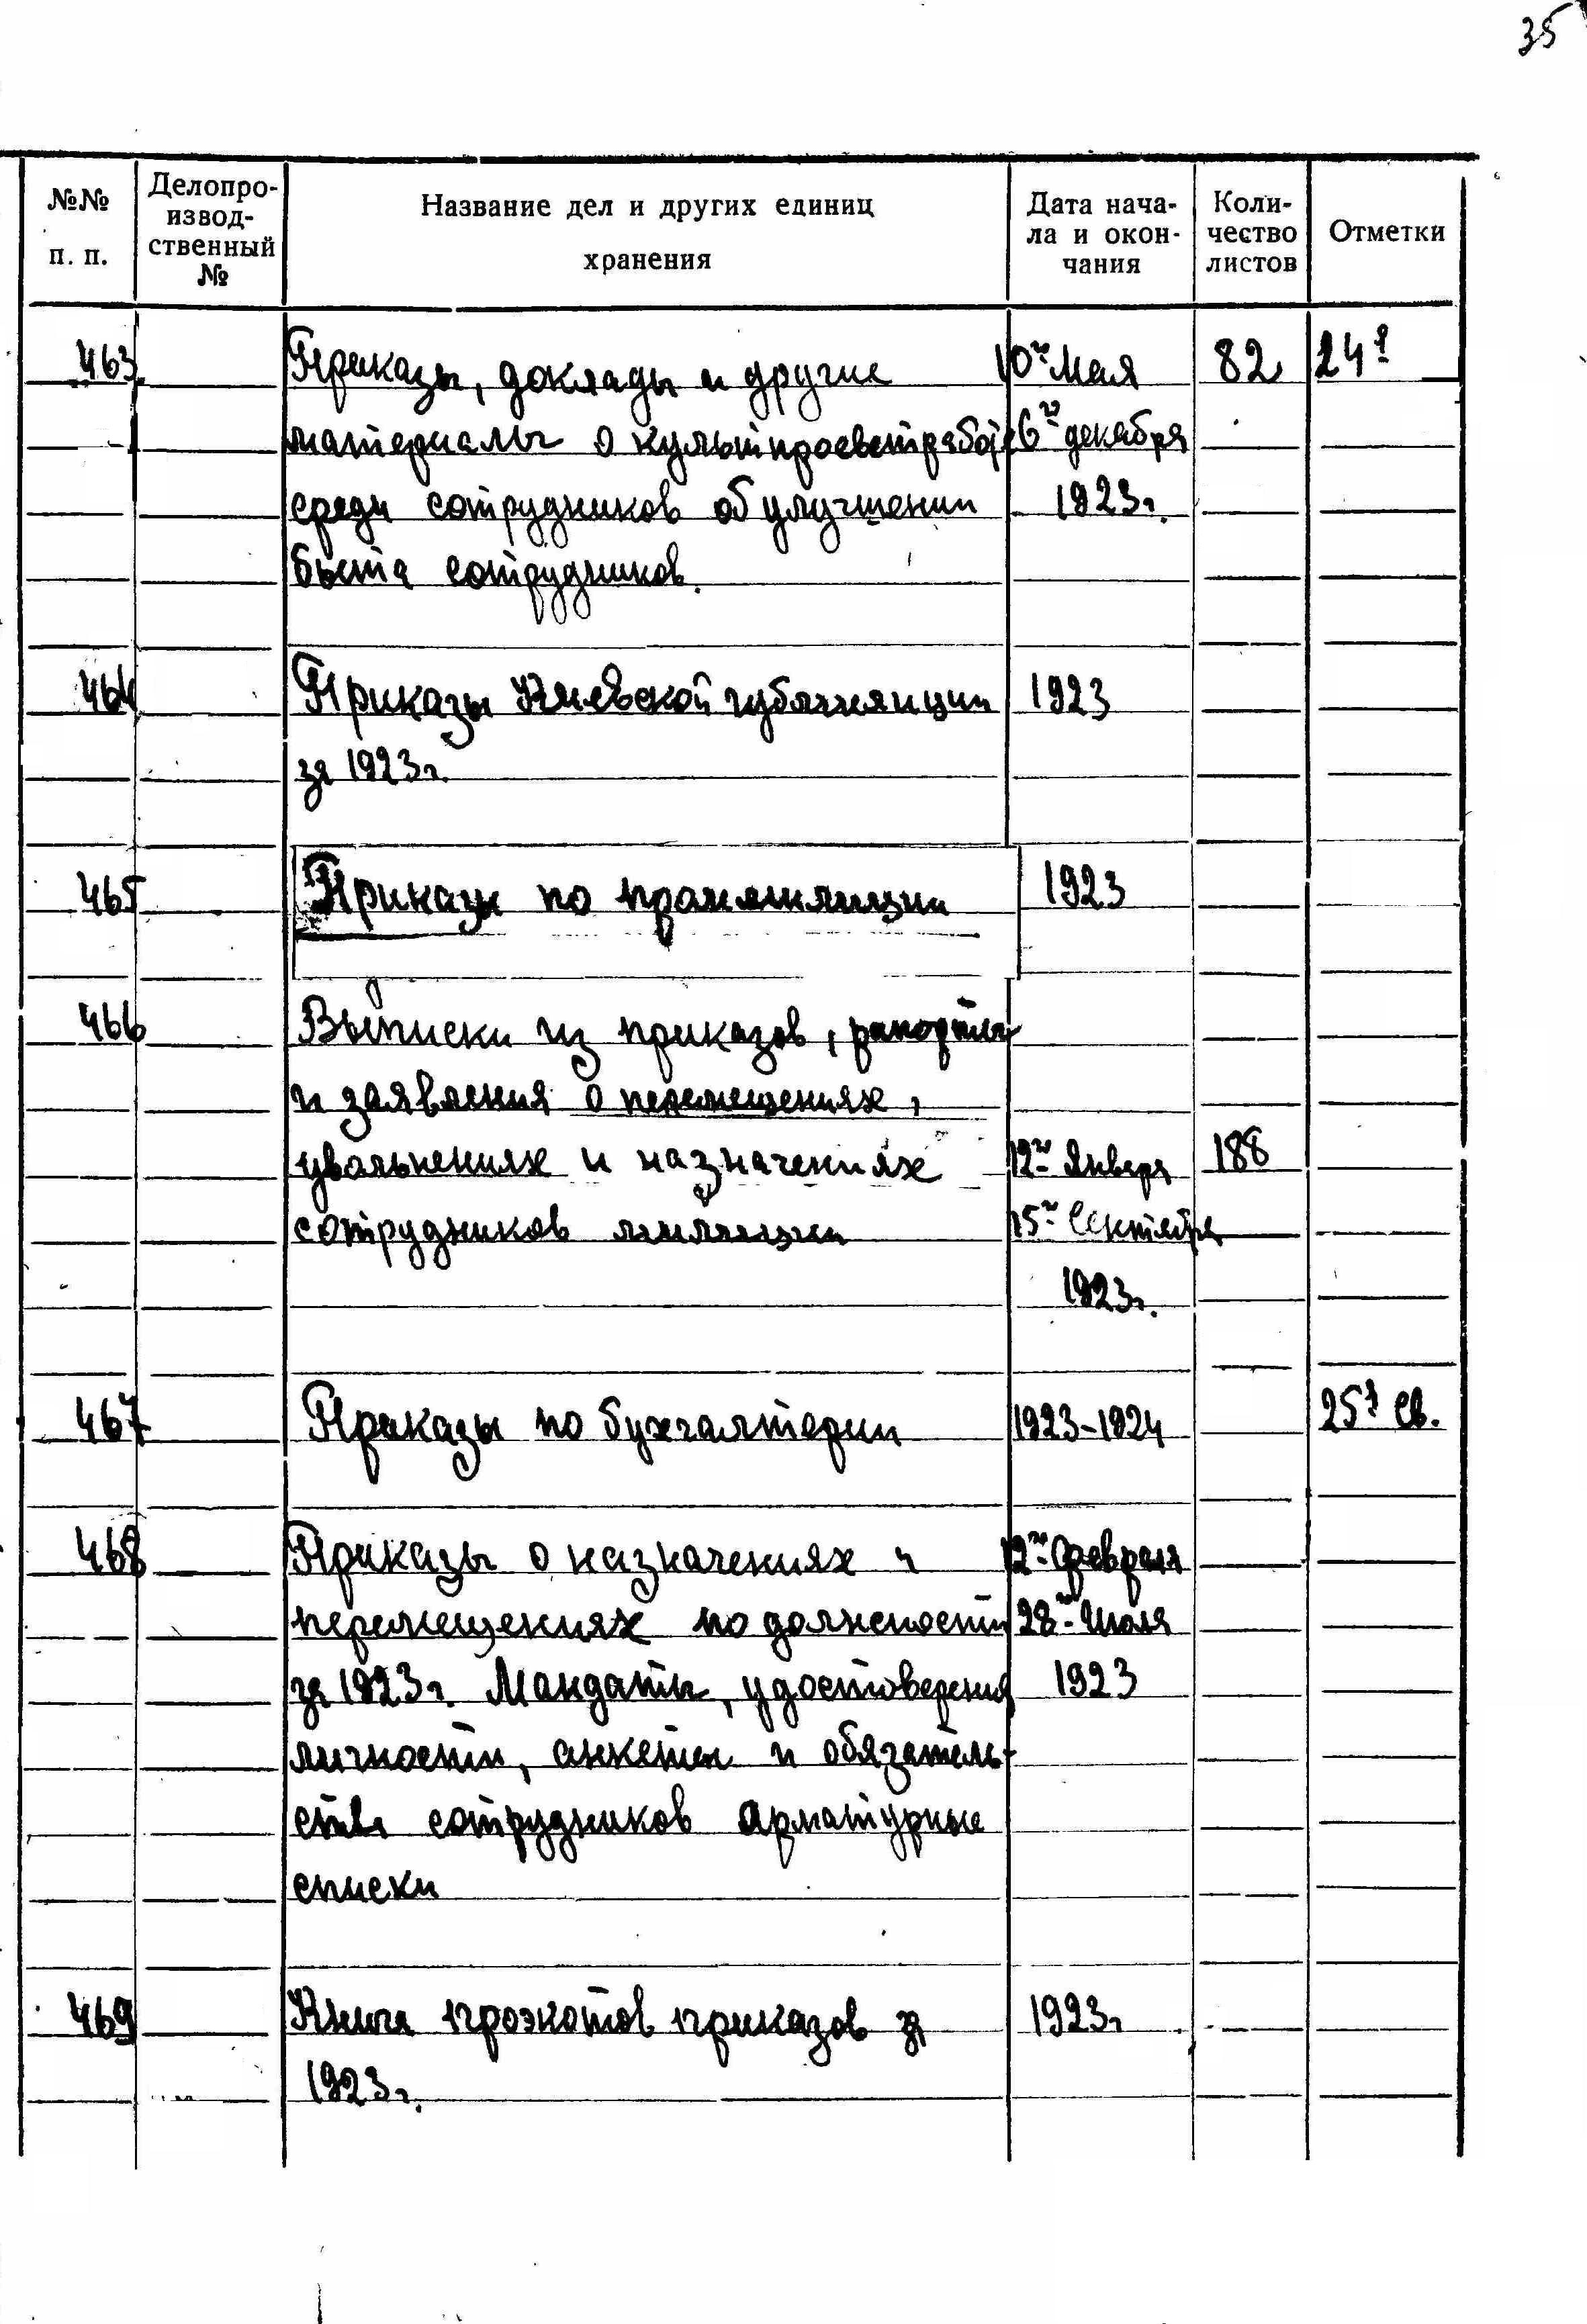 35
№№ п. п.
Делопро-
извод-
ственный
№
Название дел и других единиц
хранения
Дата нача-
ла и окон-
чания
Коли-
чество
листов
Отметки
463 Приказы, доклады и другие 10го мая 82
материалы о культпросветработе 6го декабря
среди сотрудников об улучшении 1923г.
быта сотрудников.
464 Приказы Киевской губмилиции 1923
за 1923г.
465 Приказы по проммилиции 1923
466 Выписки из приказов, рапорты
и заявления о перемещениях,
увольнениях и назначениях 12го января 188
сотрудников милиции 15го сентября
1923г.
467 Приказы по бухгалтерии 1923-1924
468 Приказы о назначениях и 12го февраля
перемещениях по должности 28го июля
за 1923г. Мандаты, удостоверения 1923
личности, анкеты и обязатель-
ства сотрудников арматурные
списки
469 Книга проэкотов приказов за 1923г
1923г.